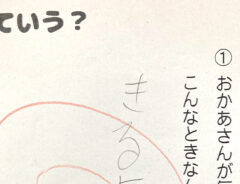 ていう？
① おかあさんが
こんなときな
きる